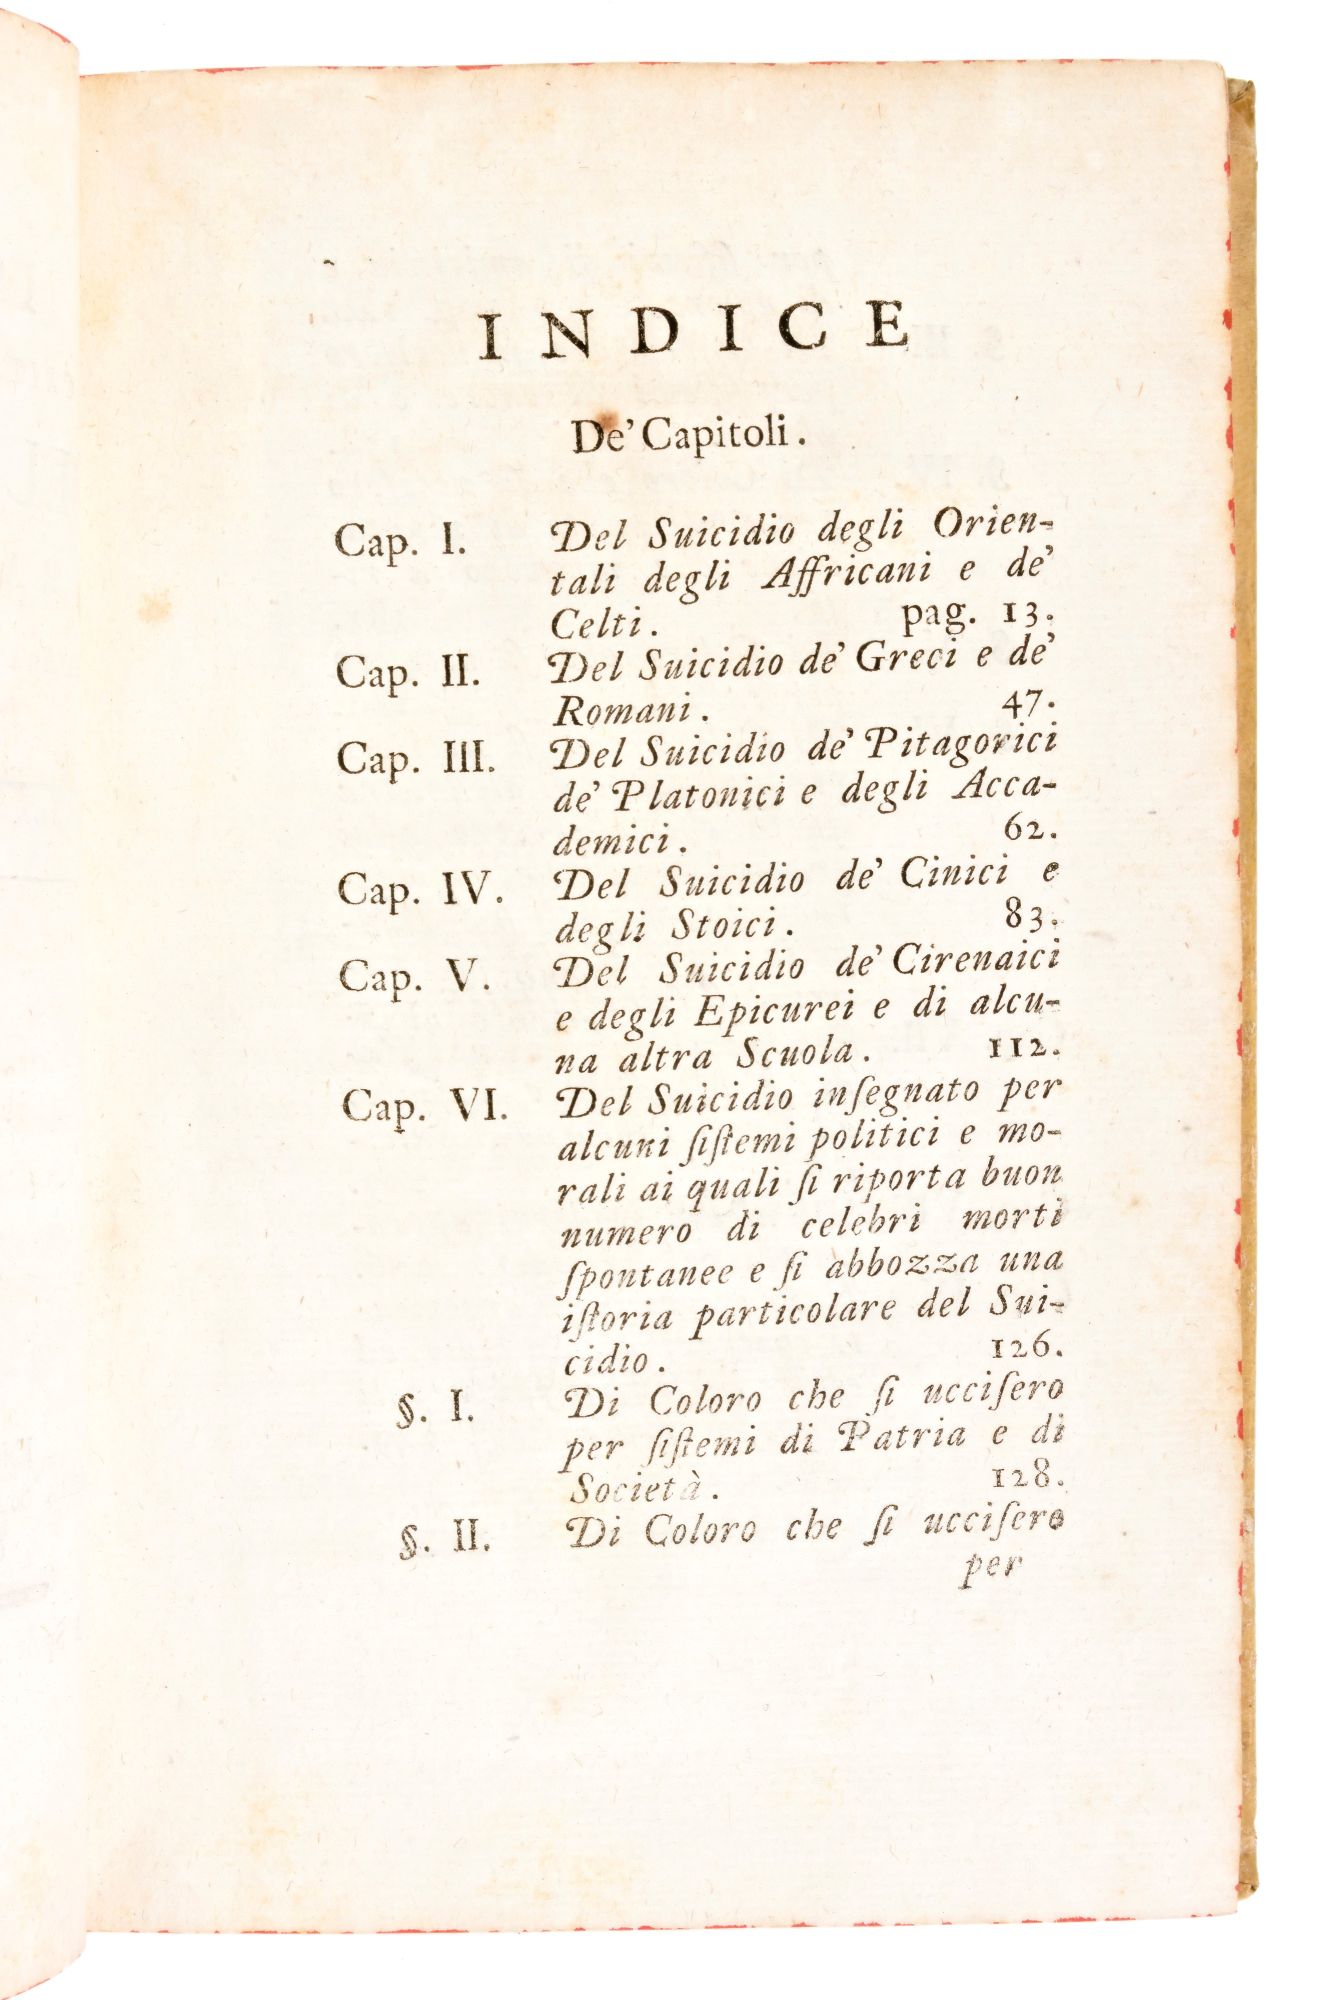 INDICE
De' Capitoli.
Cap. I. Del Suicidio degli Orien-
tali degli Affricani e de'
Celti. pag. 13.
Cap. II. Del Suicidio de' Greci e de'
Romani. 47.
Cap. III. Del Suicidio de' Pitagorici
de' Platonici e degli Acca-
demici. 62.
Cap. IV. Del Suicidio de' Cinici e
degli Stoici. 83.
Cap. V. Del Suicidio de' Cirenaici
e degli Epicurei e di alcu-
na altra Scuola. 112.
Cap. VI. Del Suicidio inſegnato per
alcuni ſiſtemi politici e mo-
rali ai quali ſi riporta buon
numero di celebri morti
ſpontanee e ſi abbozza una
iſtoria particolare del Sui-
cidio. 126.
§. I. Di Coloro che ſi ucciſero
per ſiſtemi di Patria e di
Società. 128.
§. II. Di Coloro che ſi ucciſero
per